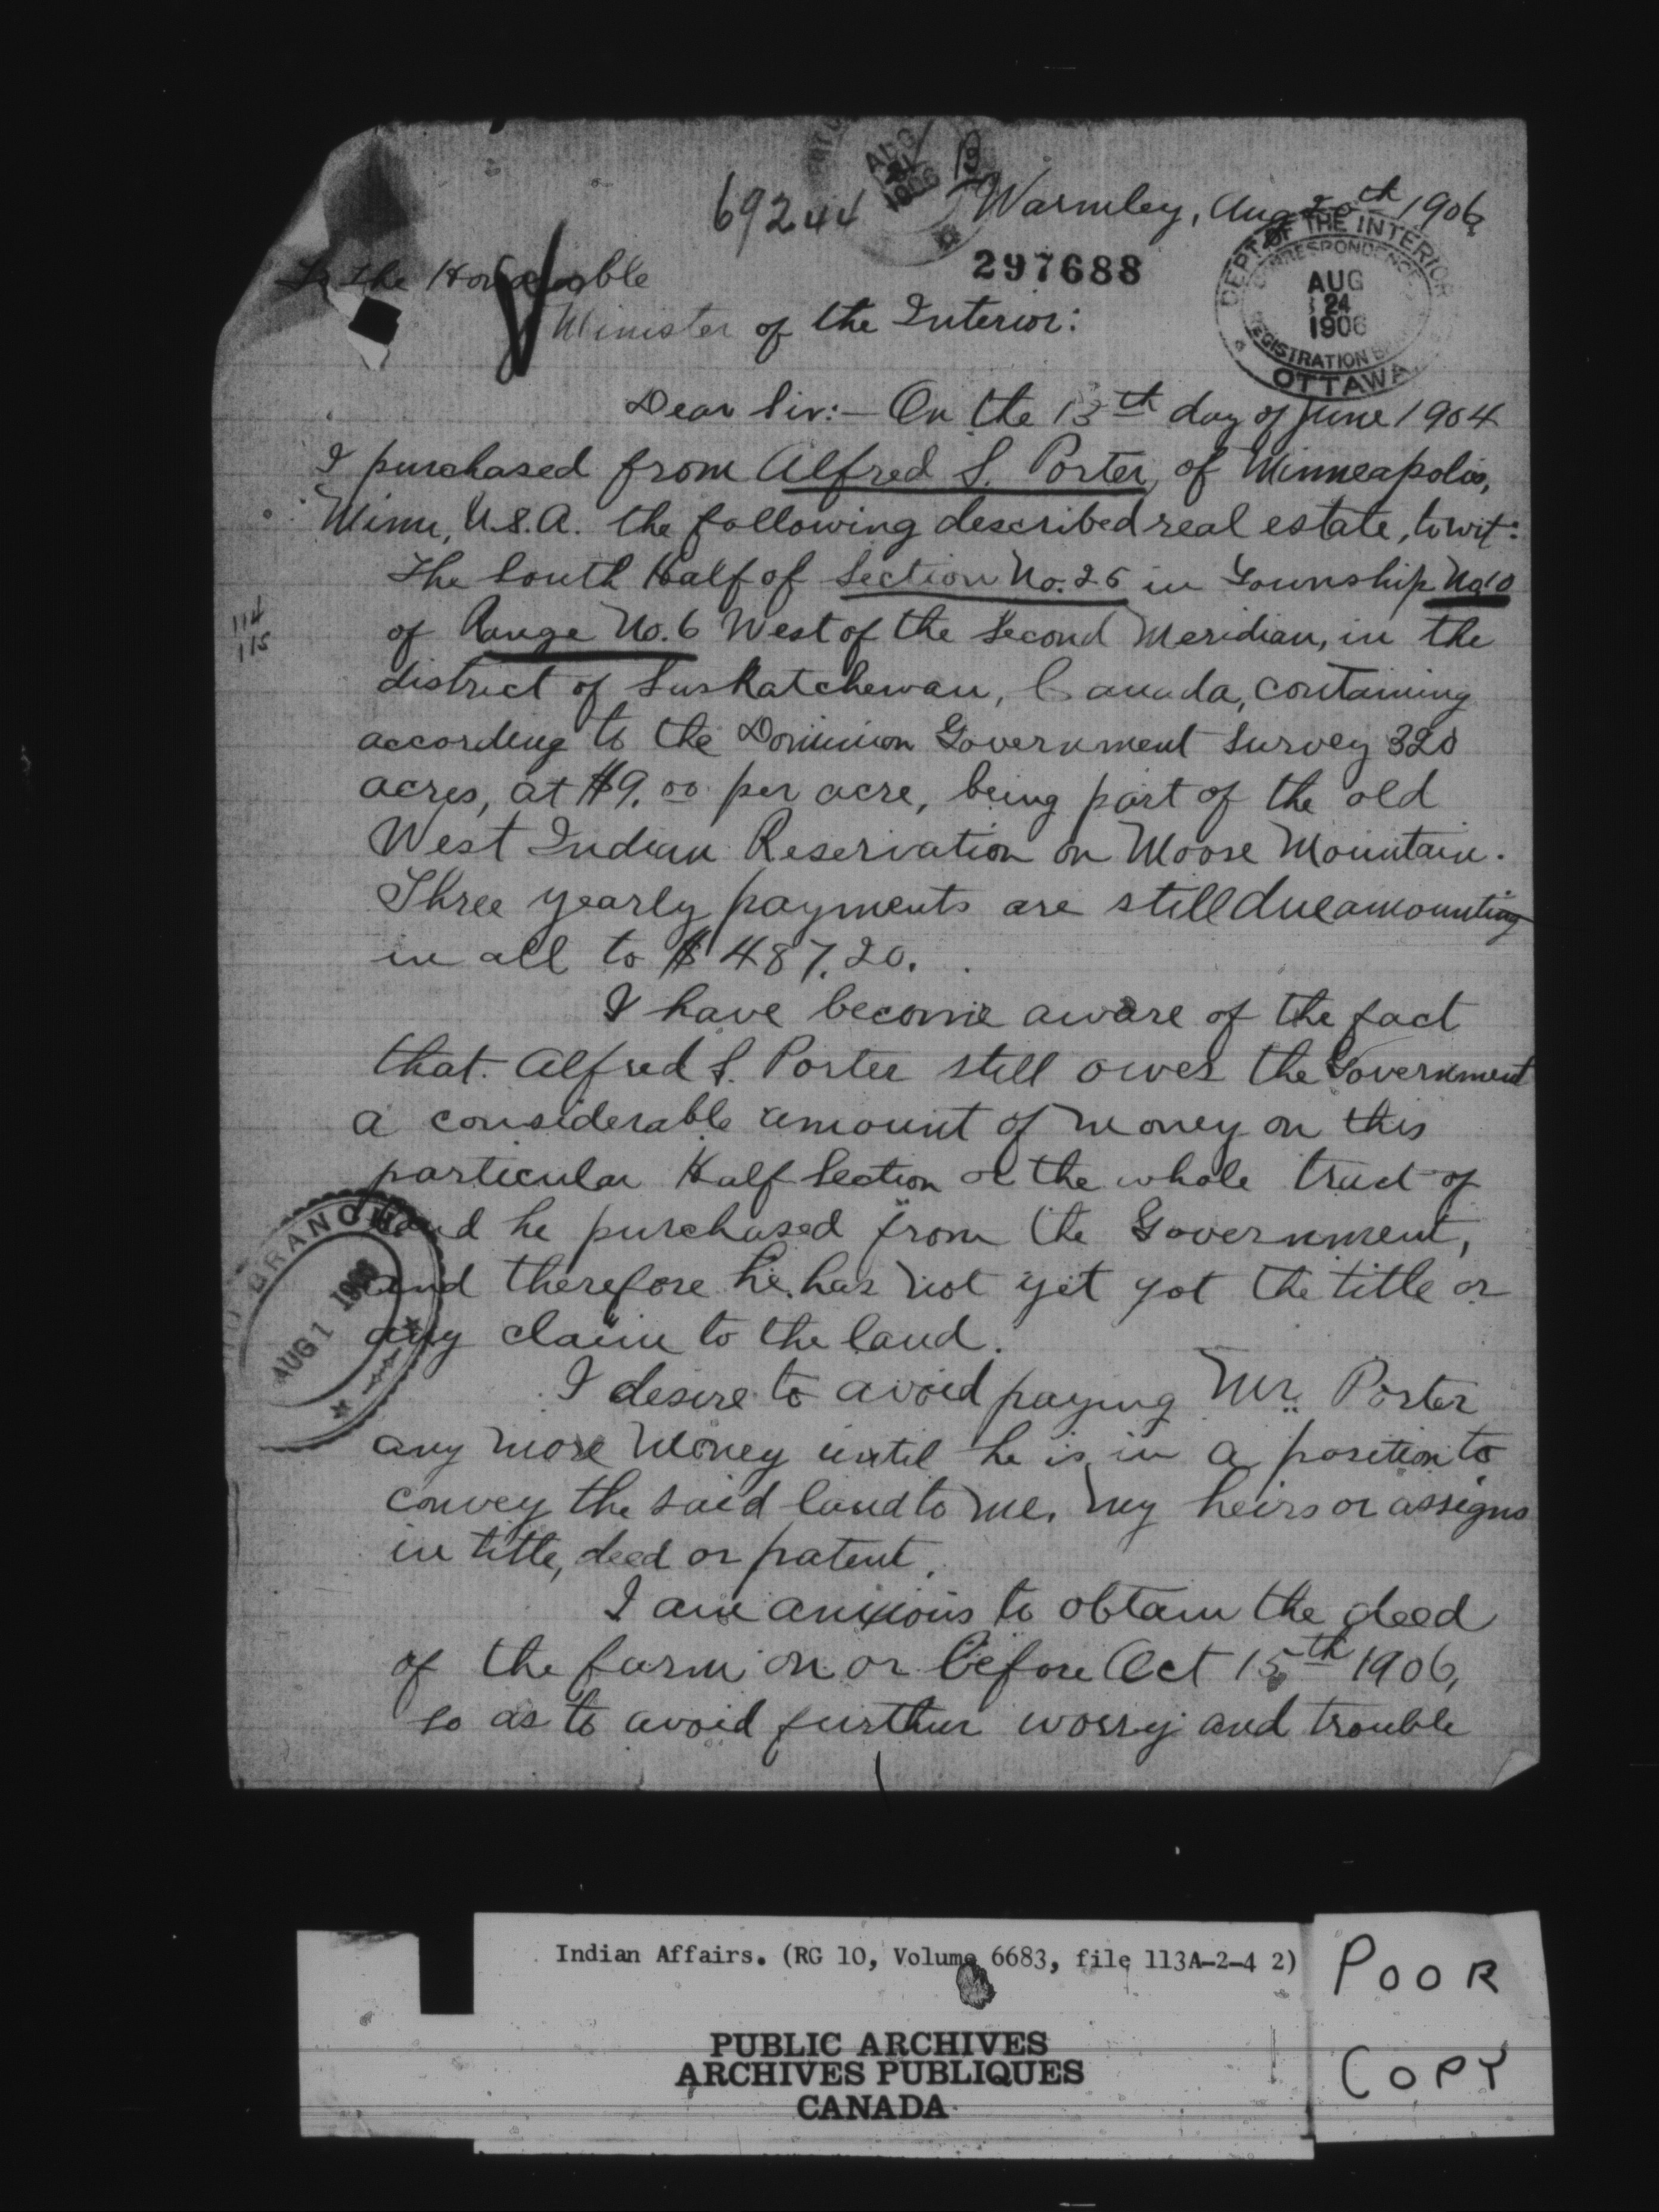 AUG
1906
69244
Warmley, Aug 20th 1906
297688
DEPT. OF THE INTERIOR
CORRESPONDENCE
AUG
24
1906
REGISTRATION
OTTAWA
To the Honorable
Minister of the Interior:
Dear Sir:— On the 13th day of June 1904
I purchased from Alfred S. Porter, of Minneapolis,
Minn, U.S.A. the following described real estate, to wit:
The South Half of Section No. 26 in Township No 10
114
115
of Range No. 6 West of the Second Meridian, in the
district of Saskatchewan, Canada, containing
according to the Dominion Government Survey 320
acres, at $9.00 per acre, being part of the old
West Indian Reservation on Moose Mountain.
Three yearly payments are still due amounting
in all to $487.20.
I have become aware of the fact
that Alfred S. Porter still owes the Government
a considerable amount of money on this
particular Half Section or the whole tract of
land he purchased from the Government,
and therefore he has not yet got the title or
any claim to the land.
BRANCH
AUG 1 1906
I desire to avoid paying Mr. Porter
any more money until he is in a position to
convey the said land to me, my heirs or assigns
in title, deed or patent.
I am anxious to obtain the deed
of the farm on or before Oct 15th 1906,
so as to avoid further worry and trouble
Indian Affairs. (RG 10, Volume 6683, file 113A-2-4 2)
POOR
COPY
PUBLIC ARCHIVES
ARCHIVES PUBLIQUES
CANADA